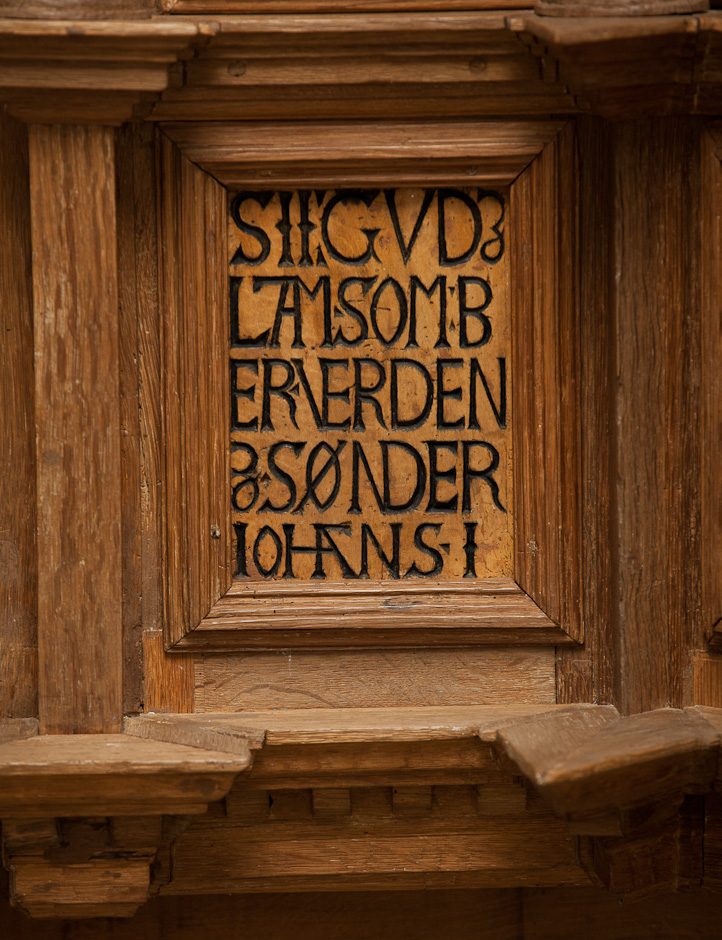 SII:GVDʒ
LAM·SOM·B
ER·VERDEN
ʒ·SØNDER
IOHANS·I